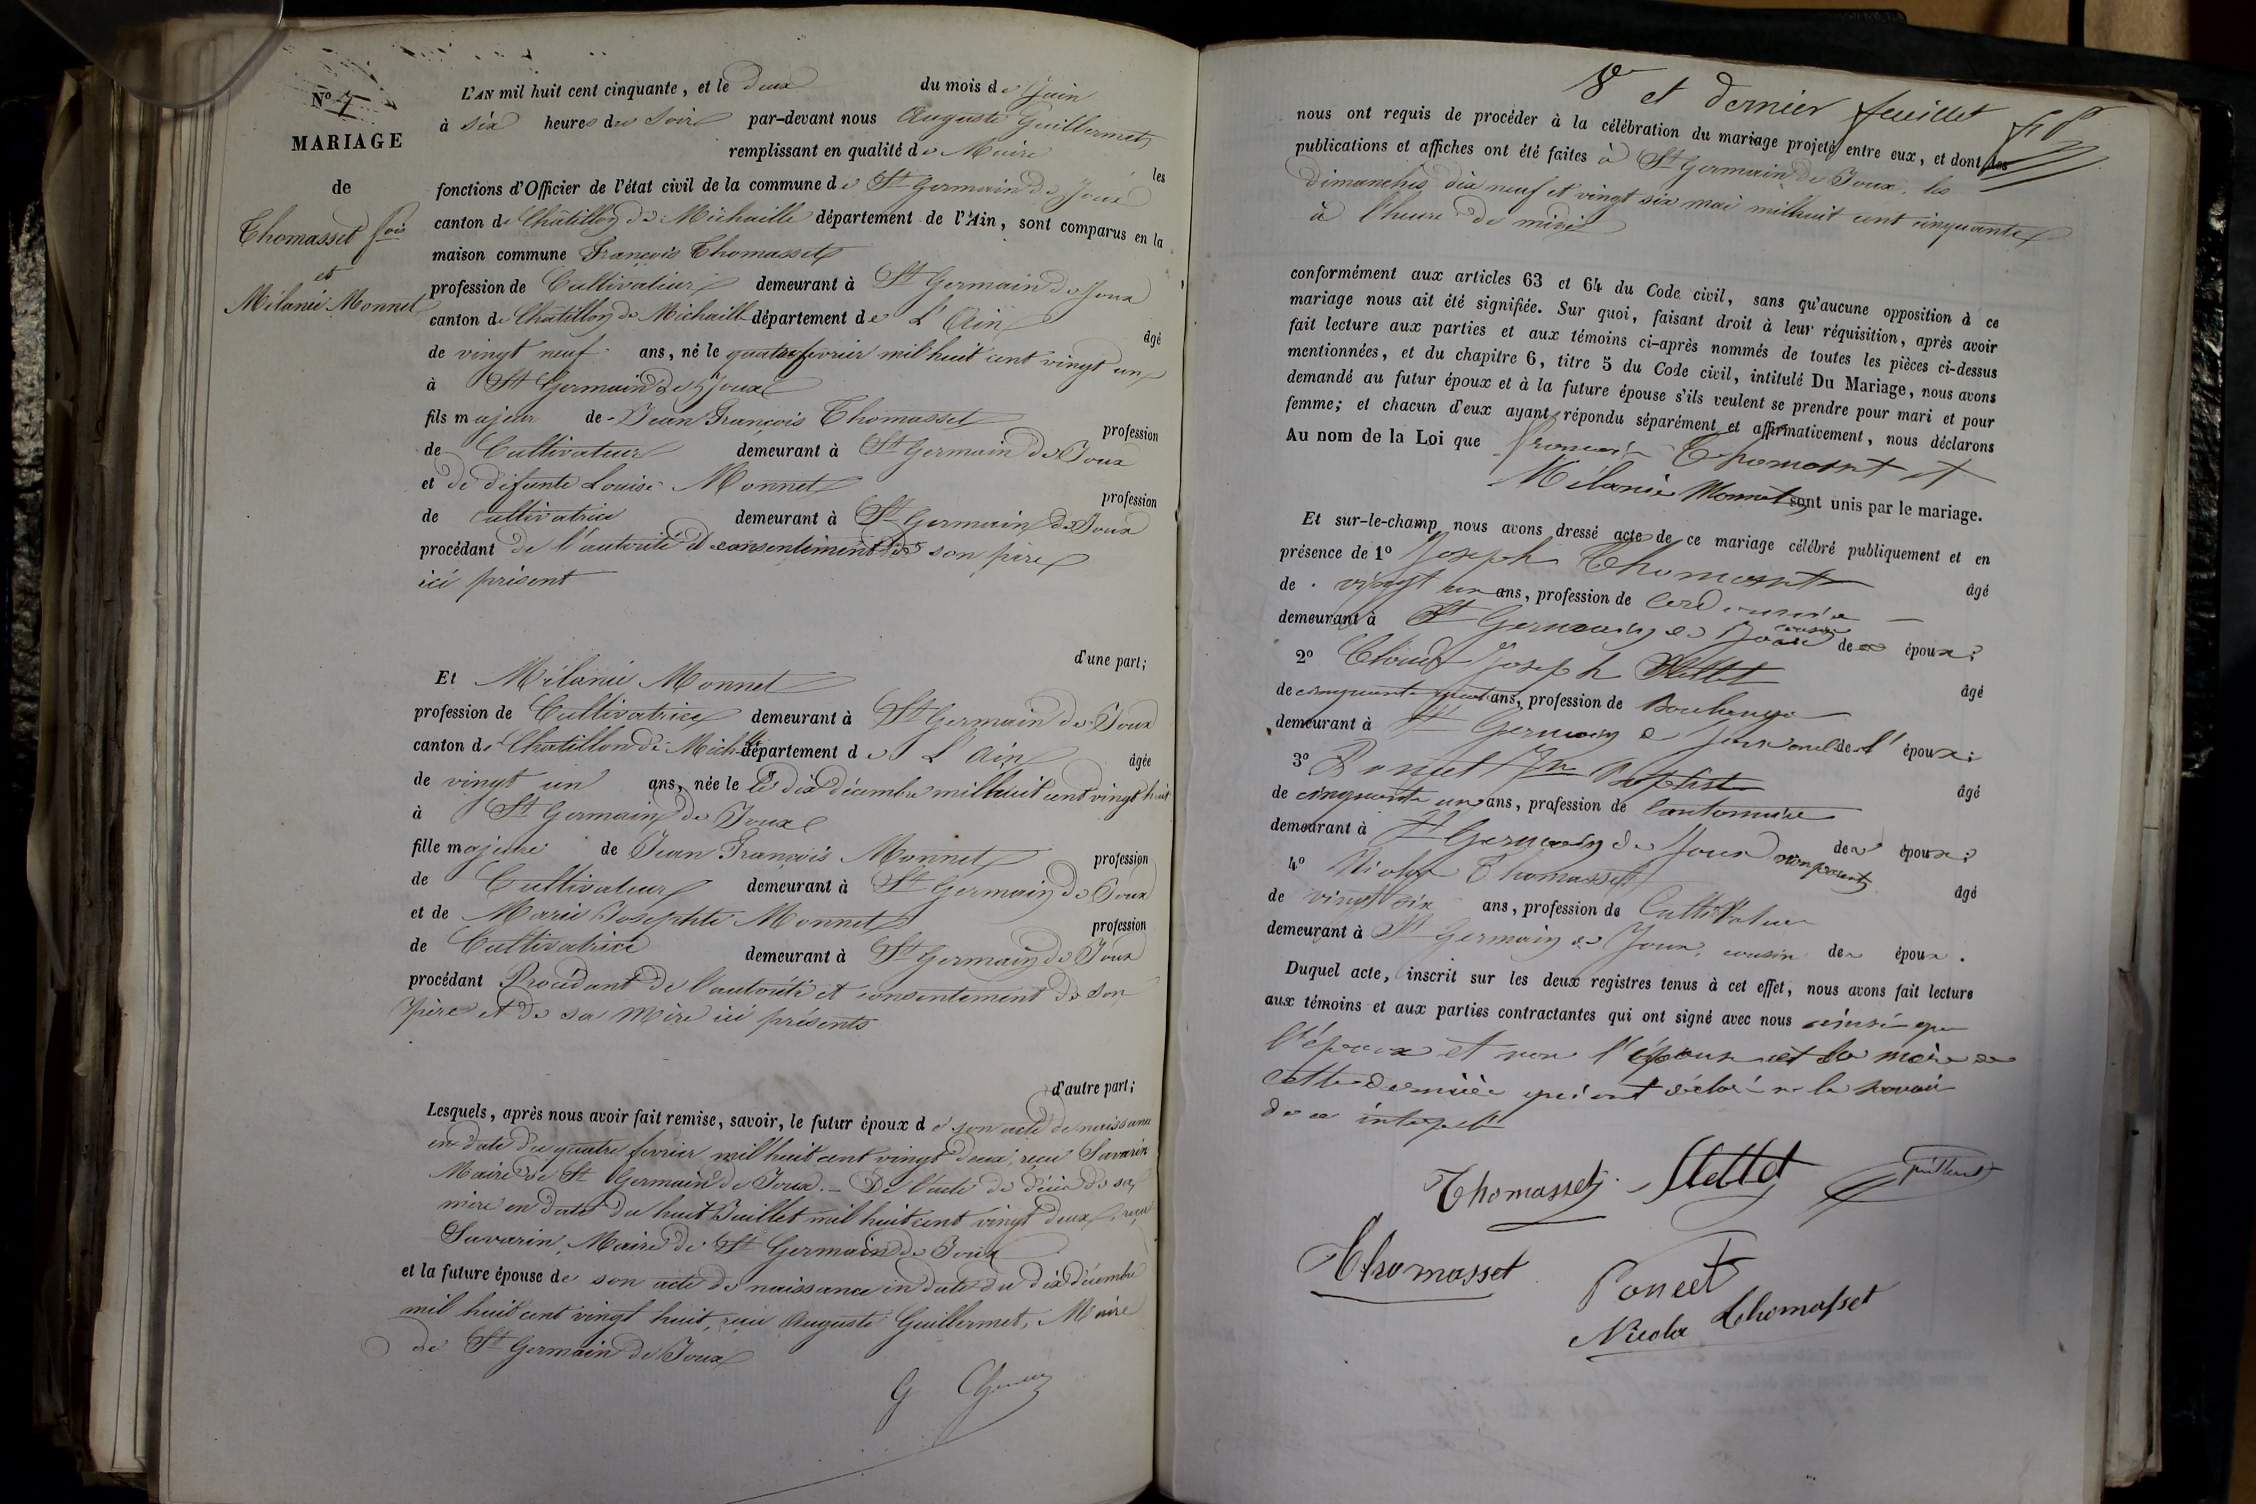 N° 7
MARIAGE
de
Thomasset fois
et
Mélanie Monnet
L'AN mil huit cent cinquante, et le deux du mois de Juin
à six heures du soir par-devant nous Auguste Guillermet
remplissant en qualité de Maire les
fonctions d'Officier de l'état civil de la commune de St Germain de Joux
canton de Chatillon de Michaille département de l'Ain, sont comparus en la
maison commune François Thomasset
profession de Cultivateur demeurant à St Germain de Joux
canton de Chatillon de Michaille département de L'Ain âgé
de vingt neuf ans, né le quatre fevrier mil huit cent vingt un
à St Germain de Joux
fils majeur de Jean François Thomasset profession
de Cultivateur demeurant à St Germain de Joux
et de défunte Louise Monnet profession
de cultivatrice demeurant à St Germain de Joux
procédant de l'autorité et consentement de son père
ici présent
d'une part;
Et Mélanie Monnet
profession de Cultivatrice demeurant à St Germain de Joux
canton de Chatillon de Mich lle département de L'Ain âgée
de vingt un ans, née le le dix décembre mil huit cent vingt huit
à St Germain de Joux
fille majeure de Jean François Monnet profession
de Cultivateur demeurant à St Germain de Joux
et de Marie Josephte Monnet profession
de Cultivatrice demeurant à St Germain de Joux
procédant Procédant de l'autorité et consentement de son
père et de sa mère ici présents
d'autre part;
Lesquels, après nous avoir fait remise, savoir, le futur époux de son acte de naissance
en date du quatre fevrier mil huit cent vingt deux, reçu Savarin
Maire de St Germain de Joux. – De l'acte de décès de sa
mère en date du huit Juillet mil huit cent vingt deux, reçu
Savarin, Maire de St Germain de Joux
et la future épouse de son acte de naissance en date du dix décembre
mil huit cent vingt huit, reçu Auguste Guillermet, Maire
de St Germain de Joux
8e et dernier feuillet
nous ont requis de procéder à la célébration du mariage projeté entre eux, et dont les
publications et affiches ont été faites à St Germain de Joux, les
dimanches dix neuf et vingt six mai mil huit cent cinquante
à l'heure de midi
conformément aux articles 63 et 64 du Code civil, sans qu'aucune opposition à ce
mariage nous ait été signifiée. Sur quoi, faisant droit à leur réquisition, après avoir
fait lecture aux parties et aux témoins ci-après nommés de toutes les pièces ci-dessus
mentionnées, et du chapitre 6, titre 5 du Code civil, intitulé Du Mariage, nous avons
demandé au futur époux et à la future épouse s'ils veulent se prendre pour mari et pour
femme; et chacun d'eux ayant répondu séparément et affirmativement, nous déclarons
Au nom de la Loi que françois Thomasset et
Mélanie Monnet sont unis par le mariage.
Et sur-le-champ nous avons dressé acte de ce mariage célébré publiquement et en
présence de 1° Joseph Thomasset âgé
de vingt un ans, profession de Cordonnier
demeurant à St Germain de Joux cousin des époux;
2° Claude Joseph Stettet âgé
de cinquante quatre ans, profession de Boulanger
demeurant à St Germain de Joux oncle de l'époux;
3° Poncet Jn Baptiste âgé
de cinquante un ans, profession de Cantonnier
demeurant à St Germain de Joux non parent des époux;
4° Nicolas Thomasset âgé
de vingt six ans, profession de Cultivateur
demeurant à St Germain de Joux, cousin des époux.
Duquel acte, inscrit sur les deux registres tenus à cet effet, nous avons fait lecture
aux témoins et aux parties contractantes qui ont signé avec nous ainsi que
l'époux et non l'épouse et la mère de
cette dernière qui ont déclaré ne le savoir
de ce interpellé
Thomasset Stettet Guillermet
Thomasset Poncet
Nicola Thomasset